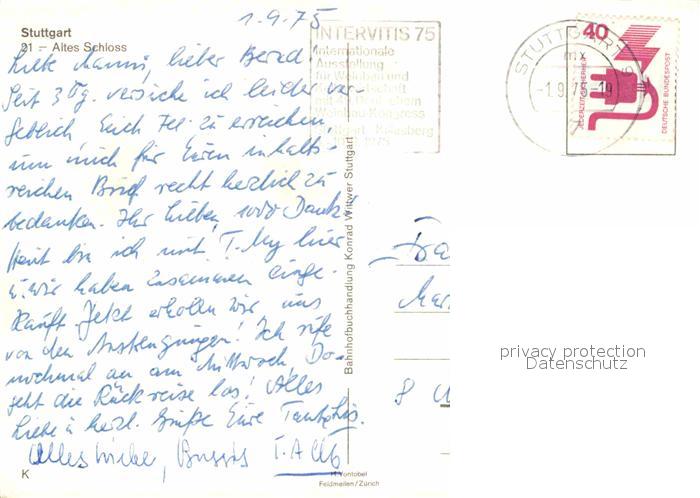 1.9.75
Stuttgart
21 – Altes Schloss
Liebe Hanni, lieber Bernd!
Seit 3 Tg. versuche ich leider ver-
geblich Euch tel. zu erreichen,
um mich für Euren inhalts-
reichen Brief recht herzlich zu
bedanken. Ihr Lieben, 1000 Dank!
Heut bin ich mit T. My hier
u. wir haben zusammen einge-
kauft. Jetzt erholen wir uns
von den Anstrengungen! Ich rufe
nochmal an am Mittwoch, Do-
geht die Rückreise los! Alles
Liebe u. herzl. Grüße Eure
Alles Liebe, Bussis
K
INTERVITIS 75
Internationale
Ausstellung
für Weinbau und
mit
Weinbau-Kongress
Stuttgart Killesberg
1975
STUTTGART
-1.9.75-19
mx
40
JEDERZEIT SICHERHEIT
DEUTSCHE BUNDESPOST
Bahnhofbuchhandlung Konrad Wittwer Stuttgart
Vontobel
Feldmeilen/Zürich
8
privacy protection
Datenschutz